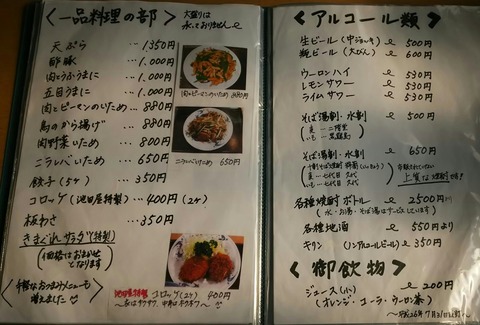 ＜一品料理の部＞
大盛りは
承っておりません
天ぷら …1350円
酢豚 …1.000円
肉とうふうまに …1.000円
五目うまに …1.000円
肉とピーマンのいため … 880円
鳥のから揚げ … 880円
肉野菜いため … 800円
ニラレバいため … 650円
餃子(5ケ) … 350円
コロッケ(池田屋特製) … 400円(2ケ)
板わさ … 350円
きまぐれサラダ(特製)
(価格はおまかせとなります)
手軽なおつまみメニューも
増えました
肉とピーマンのいため 880円
ニラレバいため 650円
池田屋特製 コロッケ(2ケ) 400円
＜アルコール類＞
生ビール(中ジョッキ) 500円
瓶ビール(大びん) 600円
ウーロンハイ 530円
レモンサワー 530円
ライムサワー 530円
そば湯割・水割 500円
麦… 二階堂
いも… 黒霧島
そば湯割・水割 650円
麦… 七代目
いも… 七代目
上質な焼酎です!
各種焼酎ボトル 2500円
(水・お湯・そば湯はサービスしています)
各種地酒 550円より
キリン (ノンアルコールビール) 350円
＜御飲物＞
ジュース(小) 200円
(オレンジ・コーラ・ウーロン茶)